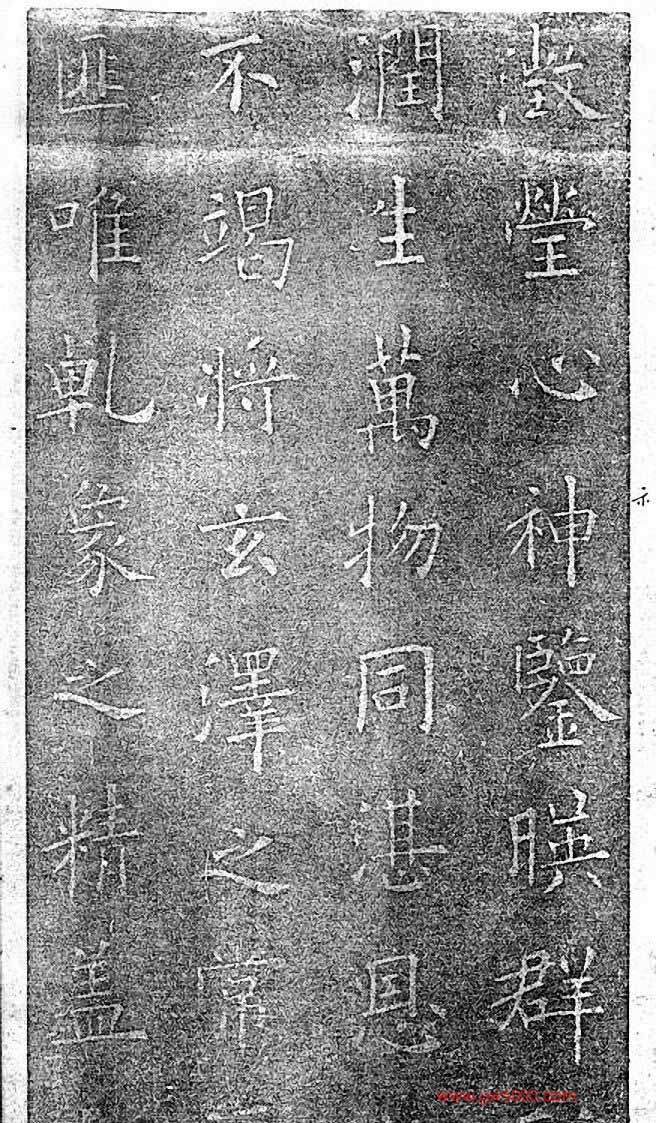 澂瑩心神鑒暎群
潤生萬物同湛恩
不竭將玄澤之常
匪唯乾象之精盖